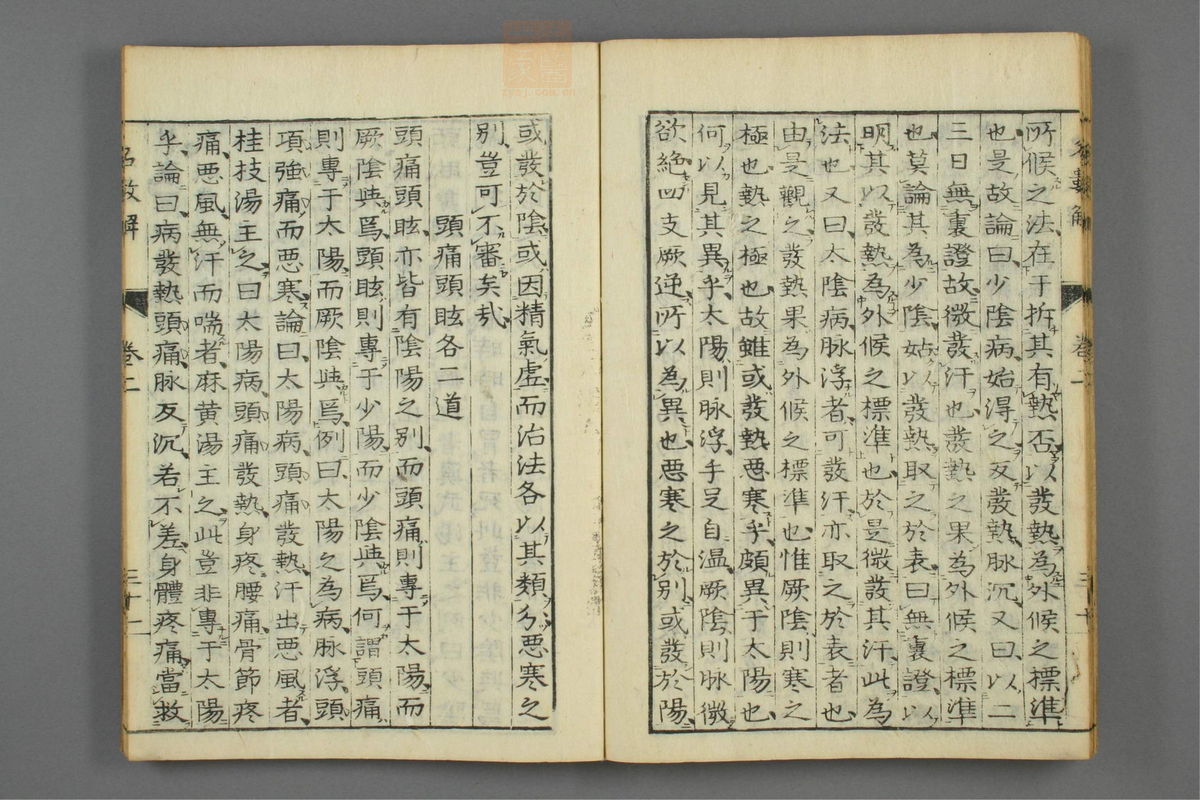 所候之法在于拆其有熱否以發熱為外候之標準
也是故論曰少陰病始得之反發熱脉沉又曰以二
三日無裏證故微發汗也發熱之果為外候之標準
也莫論其為少陰姑以發熱取之於表曰無裏證以
明其以發熱為外候之標準也於是微發其汗此為
法也又曰太陰病脉浮者可發汗亦取之於表者也
由是觀之發熱果為外候之標準也惟厥陰則寒之
極也熱之極也故雖或發熱惡寒乎頗異于太陽也
何以見其異乎太陽則脉浮手足自温厥陰則脉微
欲絶四支厥逆所以為異也惡寒之於別或發於陽
或發於陰或因精氣虛而治法各以其類分惡寒之
別豈可不審矣哉
頭痛頭眩各二道
頭痛頭眩亦皆有陰陽之別而頭痛則專于太陽而
厥陰與焉頭眩則專于少陽而少陰與焉何謂頭痛
則專于太陽而厥陰與焉例曰太陽之為病脉浮頭
項強痛而惡寒論曰太陽病頭痛發熱汗出惡風者
桂枝湯主之曰太陽病頭痛發熱身疼腰痛骨節疼
痛惡風無汗而喘者麻黄湯主之此豈非專于太陽
乎論曰病發熱頭痛脉反沉若不差身體疼痛當救
名數解
卷二
三十一